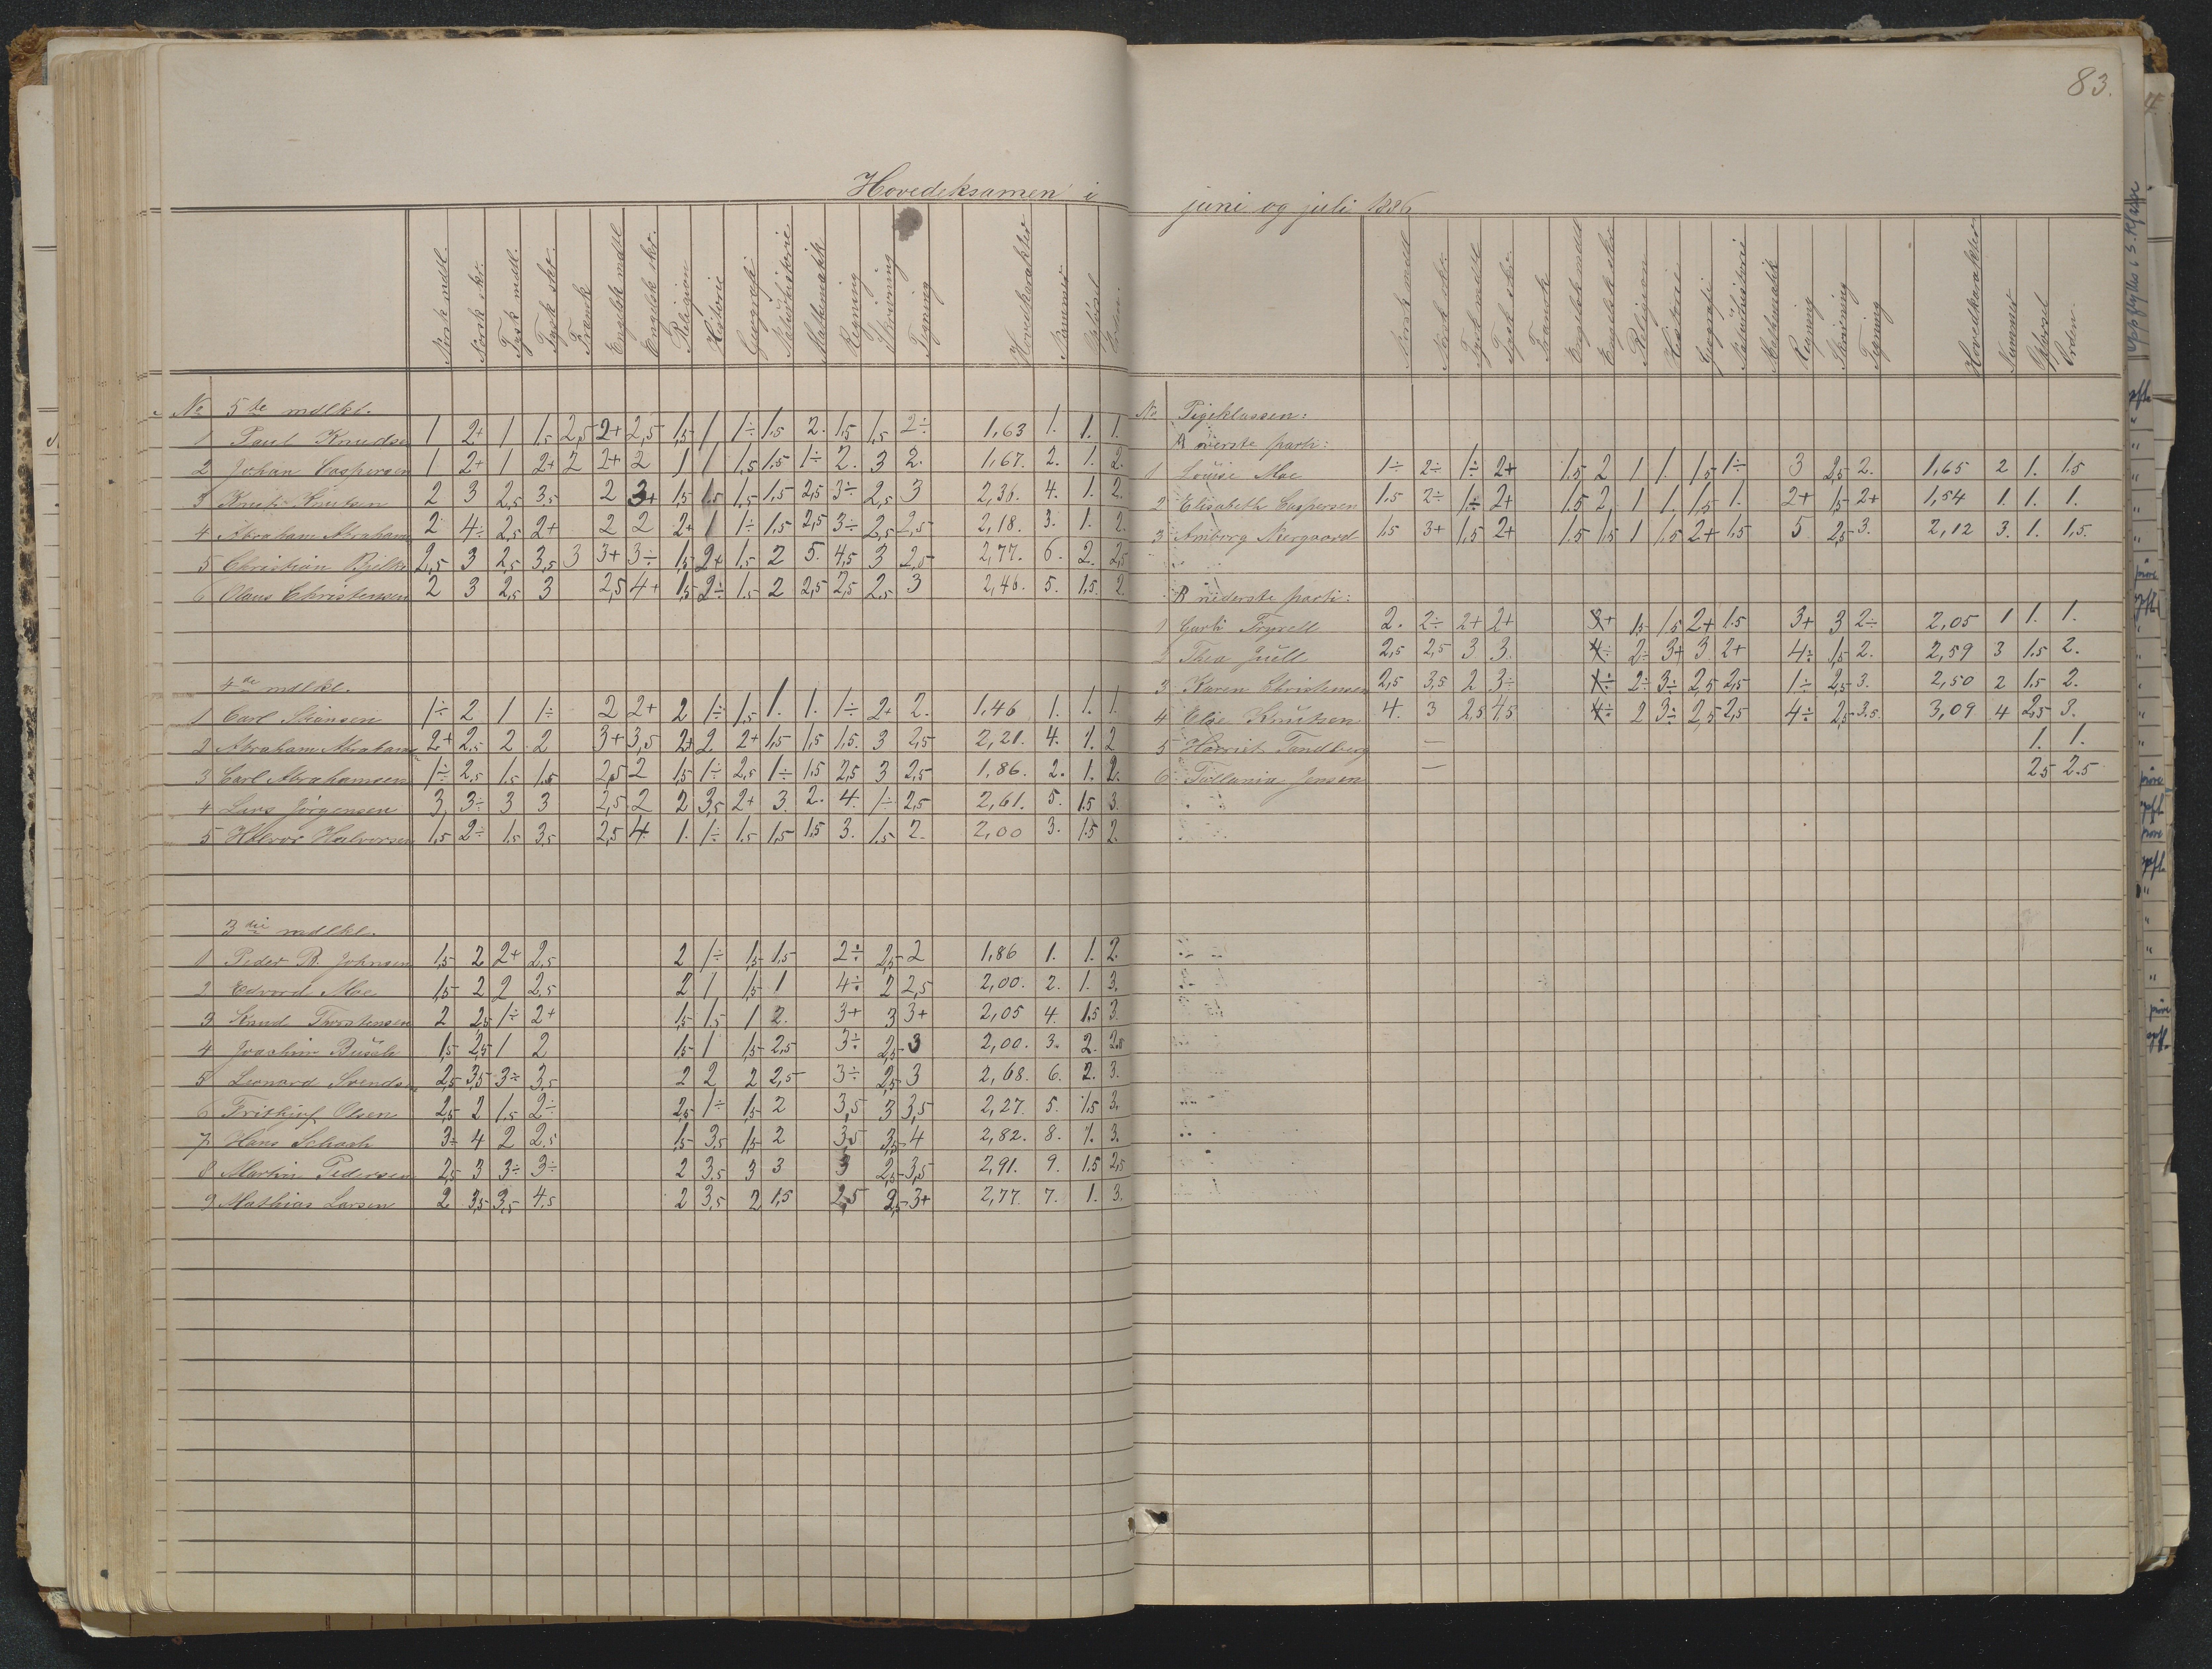 83.
Hovedeksamen i juni og juli 1886
Norsk mdtl. Norsk skr. Tysk mdtl. Tysk skr. Fransk Engelsk mdtl Engelsk skr. Religion Historie Geografi Naturhistorie Mathematik Regning Skrivning Tegning Hovedkarakter Nummer Opførsel Orden.
No 5te mdlkl.
1 Paul Knudsen 1 2+ 1 1,5 2,5 2+ 2,5 1,5 1 1÷ 1,5 2. 1,5 1,5 2÷ 1,63 1. 1. 1.
2 Johan Caspersen 1 2+ 1 2+ 2 2+ 2 1 1 1,5 1,5 1÷ 2. 3 2. 1,67. 2. 1. 2.
3 Knut Knutsen 2 3 2,5 3,5 2 3+ 1,5 1,5 1,5 1,5 2,5 3÷ 2,5 3 2,36. 4. 1. 2.
4 Abraham Abrahams 2 4÷ 2,5 2+ 2 2 2+ 1 1÷ 1,5 2,5 3÷ 2,5 2,5 2,18. 3. 1. 2.
5 Christian Bjelke 2,5 3 2,5 3,5 3 3+ 3÷ 1,5 2+ 1,5 2 5. 4,5 3 2,5 2,77. 6. 2. 2,5
6 Olaus Christensen 2 3 2,5 3 2,5 4+ 1,5 2÷ 1,5 2 2,5 2,5 2,5 3 2,46. 5. 1,5. 2.
4de mdlkl.
1 Carl Sivansen 1÷ 2 1 1÷ 2 2+ 2 1÷ 1,5 1. 1. 1÷ 2+ 2. 1,46 1. 1. 1.
2 Abraham Abrahams 2+ 2,5 2 2 3+ 3,5 2+ 2 2+ 1,5 1,5 1,5. 3 2,5 2,21. 4. 1. 2
3 Carl Abrahamsen 1÷ 2,5 1,5 1,5 2,5 2 1,5 1÷ 2,5 1÷ 1,5 2,5 3 2,5 1,86. 2. 1. 2.
4 Lars Jørgensen 3, 3÷ 3 3 2,5 2 2 3,5 2+ 3. 2. 4. 1÷ 2,5 2,61. 5. 1,5 3.
5 Halvor Halvorsen 1,5 2÷ 1,5 3,5 2,5 4. 1. 1÷ 1,5 1,5 1,5 3. 1,5 2. 2,00 3. 1,5 2.
3die mdlkl.
1 Peder B. Johnsen 1,5 2 2+ 2,5 2 1÷ 1,5 1,5 2÷ 2,5 2 1,86 1. 1. 2.
2 Edvard Moe 1,5 2 2 2,5 2 1 1,5 1 4÷ 2 2,5 2,00. 2. 1. 3.
3 Knud Thorstensen 2 2,5 1÷ 2+ 1,5 1,5 1 2. 3+ 3 3+ 2,05 4. 1,5 3.
4 Joachim 1,5 2,5 1 2 1,5 1 1,5 2,5 3÷ 2,5 3 2,00. 3. 2. 2,5
5 Leonard Svendsen 2,5 3,5 3÷ 3,5 2 2 2 2,5 3÷ 2,5 3 2,68. 6. 2. 3.
6 Frithjof Olsen 2,5 2 1,5 2÷ 2,5 1÷ 1,5 2 3,5 3 3,5 2,27. 5. 1,5 3.
7 Hans Schach 3÷ 4 2 2,5 1,5 3,5 1,5 2 3,5 3,5 4 2,82. 8. 1. 3.
8 Martin Pedersen 2,5 3 3÷ 3÷ 2 3,5 3 3 3 2,5 3,5 2,91. 9. 1,5 2,5
9 Mathias Larsen 2 3,5 3,5 4,5 2 3,5 2 1,5 2,5 2,5 3+ 2,77. 7. 1. 3.
Norsk mdtl Norsk skr. Tysk mdtl Tysk skr. Fransk Engelsk mdtl Engelsk skr. Religion Historie Geografi Naturhistorie Mathematik Regning Skrivning Tegning Hovedkarakter Nummer Opførsel Orden
No Pigeklassen:
A øverste parti:
1 Louise Moe 1÷ 2÷ 1÷ 2+ 1,5 2 1 1. 1,5 1÷ 3 2,5 2. 1,65 2 1. 1,5
2 Elisabeth Caspersen 1,5 2÷ 1÷ 2+ 1,5 2 1 1. 1,5 1. 2+ 1,5 2+ 1,54 1. 1. 1.
3 Amborg Neergaard 1,5 3+ 1,5 2+ 1,5 1,5 1 1,5 2+ 1,5 5 2,5 3. 2,12 3. 1. 1,5.
B nederste parti:
1 Garli Fryrell 2. 2÷ 2+ 2+ 3+ 1,5 1,5 2+ 1,5 3+ 3 2÷ 2,05 1 1. 1.
2 Thea Juell 2,5 2,5 3 3. 4÷ 2÷ 3+ 3 2+ 4÷ 1,5 2. 2,59 3 1,5 2.
3 Karen Christensen 2,5 3,5 2 3÷ 1÷ 2÷ 3÷ 2,5 2,5 1÷ 2,5 3. 2,50 2 1,5 2.
4 Else Knutsen 4. 3 2,5 4,5 4÷ 2 3÷ 2,5 2,5 4÷ 2,5 3,5 3,09 4 2,5 3.
5 Harriet Tandberg — 1. 1.
6 Tallania Jensen — 2,5 2,5